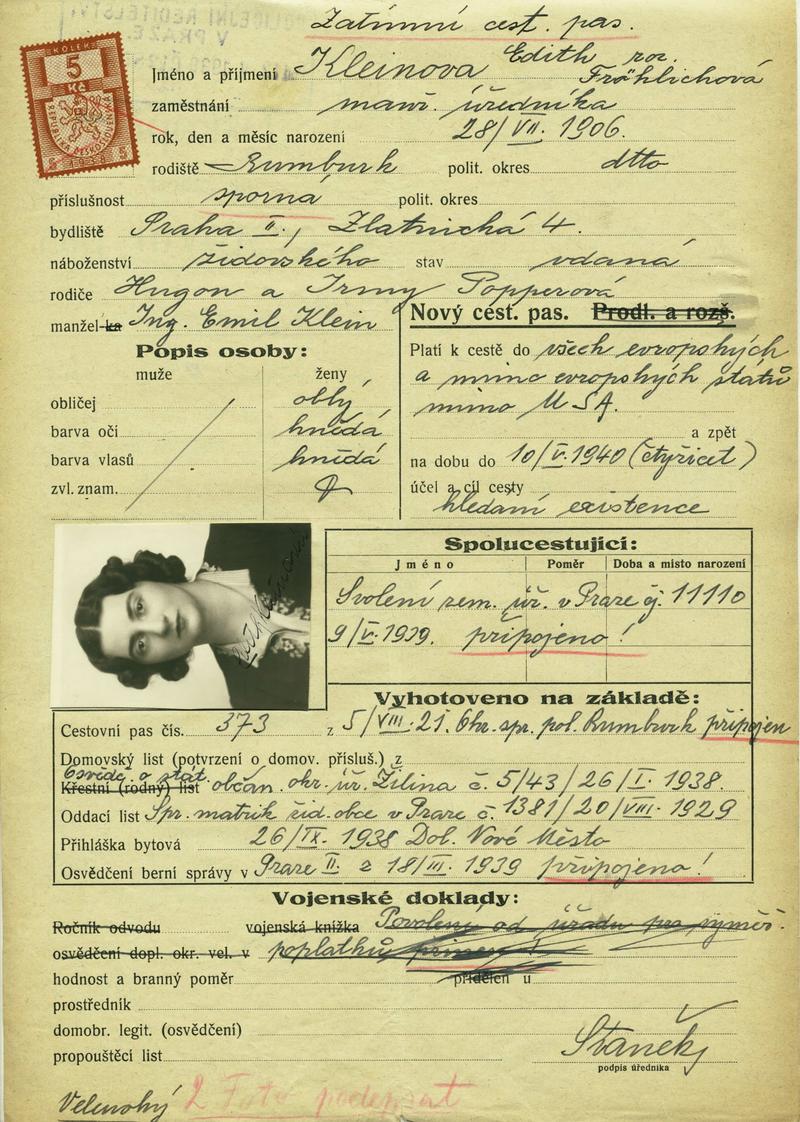 Zatímní cest. pas.
KOLEK
5
Kč
REPUBLIKA ČESKOSLOVENSKÁ
1938
Jméno a příjmení Kleinova Edith roz. Fröhlichová
zaměstnání manž. úředníka
rok, den a měsíc narození 28/VII. 1906.
rodiště Rumburk polit. okres dtto
příslušnost sporná polit. okres
bydliště Praha II., Zlatnická 4.
náboženství židovského stav vdaná
rodiče Hugon a Irmy Popperová
manžel-ka Ing. Emil Klein
Nový cest. pas. Prodl. a rozš.
Popis osoby:
muže ženy
obličej oblý
barva očí hnědá
barva vlasů hnědá
zvl. znam.
Platí k cestě do všech evropských
a mimo evropských států
mimo USA.
a zpět
na dobu do 10/V. 1940 (čtyřicet)
účel a cíl cesty
hledaní existence
Spolucestující:
Jméno Poměr Doba a místo narození
Svolení zem. úř. v Praze čj. 11110
9/V. 1939. připojeno!
Vyhotoveno na základě:
Cestovní pas čís. 373 z 5/VIII. 21. Okr. spr. pol. Rumburk připojen
Domovský list (potvrzení o domov. přísluš.) z
Osvědč. o stát.
Křestní (rodný) list občan. okr. úř. Žilina č. 5/43/26/I. 1938.
Oddací list Spr. matrik žid. obce v Praze č. 1381/20/VIII. 1929
Přihláška bytová 26/IX. 1938 Dol. Nové Město
Osvědčení berní správy v Praze II. z 18/III. 1939 připojeno!
Vojenské doklady:
Ročník odvodu vojenská knížka Povolení od úřadu pro vyměř.
osvědčení dopl. okr. vel. v poplatků
hodnost a branný poměr přidělen u
prostředník
domobr. legit. (osvědčení)
propouštěcí list
Staněk
podpis úředníka
Velenohý 2 Foto podepsat